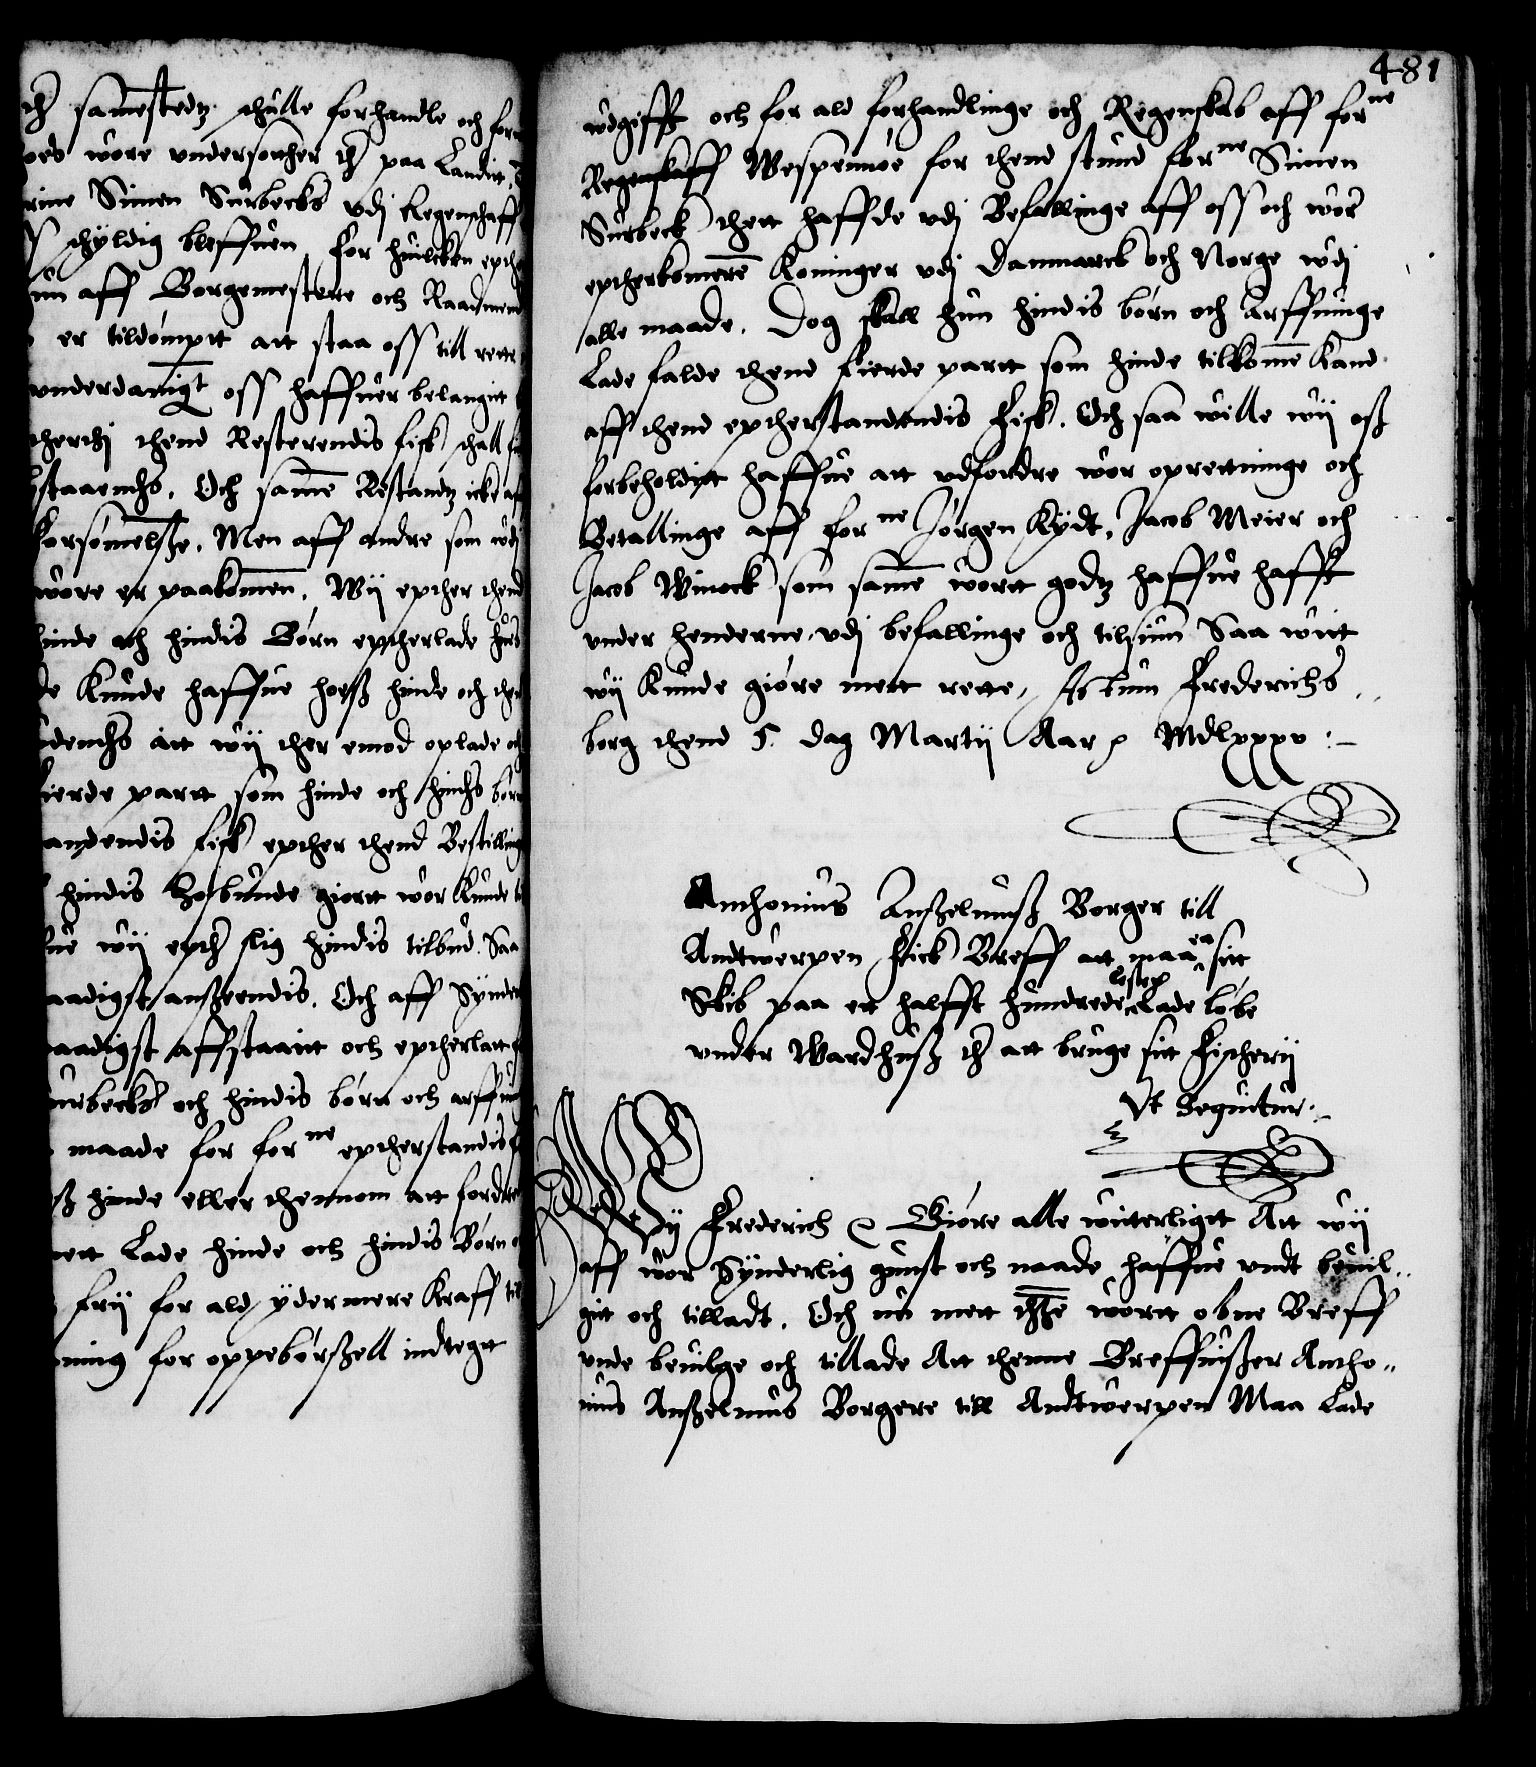 481
udgifft och for ald forhandlinge och Regenskab aff forne
Regenskaff Wespennøe for thend stund forne Simen
Surbeck thett haffde udj Befallinge aff oss och wor
epherkomere Koninger udj Danmarck och Norge udj
alle maade. Dog skall hun hindis børn och Arffuinge
Lade falde thend fierde partt som hinde tilkomme kand
aff thend epherstandendis Fisk. Och saa wille wij oss
forbeholditt haffue att udfordre wor oprettninge och
Betallinge aff forne Jørgen Kydt, Jacob Meier och
Jacob Winock som same wortt godz haffue hafft
under henderne, udj befallinge och tilsiun Saa witt
wij kunde giøre mett rette, Actum Frederichs
borg thend 5. dag Martij Aar &c Mdlxxxv :-
Anthonius Anszelmusz Borger till
Andtwerpen Fick Breff att maa sitt
ea
Skib paa ett halfft hundrede Lade løbe
lester
under Wardhusz ther att bruge sitt Fischerij
Vt Sequitur :-
Wij Frederich &c Giøre alle witterligtt Att wij
aff wor Synderlig gunst och naade haffue undt beuil..
git och tilladt. Och nu mett thette wortt obne Breff
unde beuilge och tillade Att thenne Breffuiszer Antho..
nius Anszelmus Borgere till Andtwerpen Maa Lade
ther samestedz schulle forhandle och for
wore undersotther ther paa Landitt
Simen Surbecks udj Regenschaff
schyldig bleffuen for huilcken
aff Borgemestere och Raadmend
er tildømptt att staa oss till rette
underdanigt oss haffuer belangitt
thend Resterendis fisk schall
Och same Restandtz icke
forsømelsze. Men aff andre som udj
wore er paakomen. Wij epther thend
hinde och hindis Børn eptherlade
kunde haffue hosz hinde och
att wij ther emod oplade och
fierde partt som hinde och hindis børn
fisk epther thend Bestilling
hindis Hosbunde giortt wor kunde
wij epther slig hindis tilbud. Saa
anszeendis. Och aff Synder
naadigst affstaaitt och eptherlatt
Surbecks och hindis børn och arffuing
maade for forne epherstandis
hinde eller thennom att fordre
Lade hinde och hindis Børn
frij for ald ydermere Kraff till
for oppebørszell indtegt